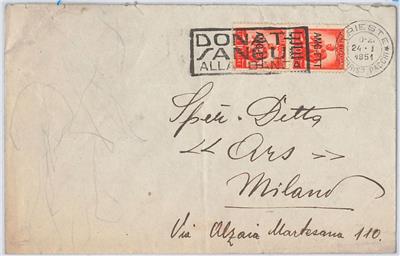 DONATE
SANGUE
ALLA
AMG-FTT
AMG-FTT
TRIESTE
24-I
1951
Spett. Ditta
"Ars"
Milano
Via Alzaia Martesana 110.